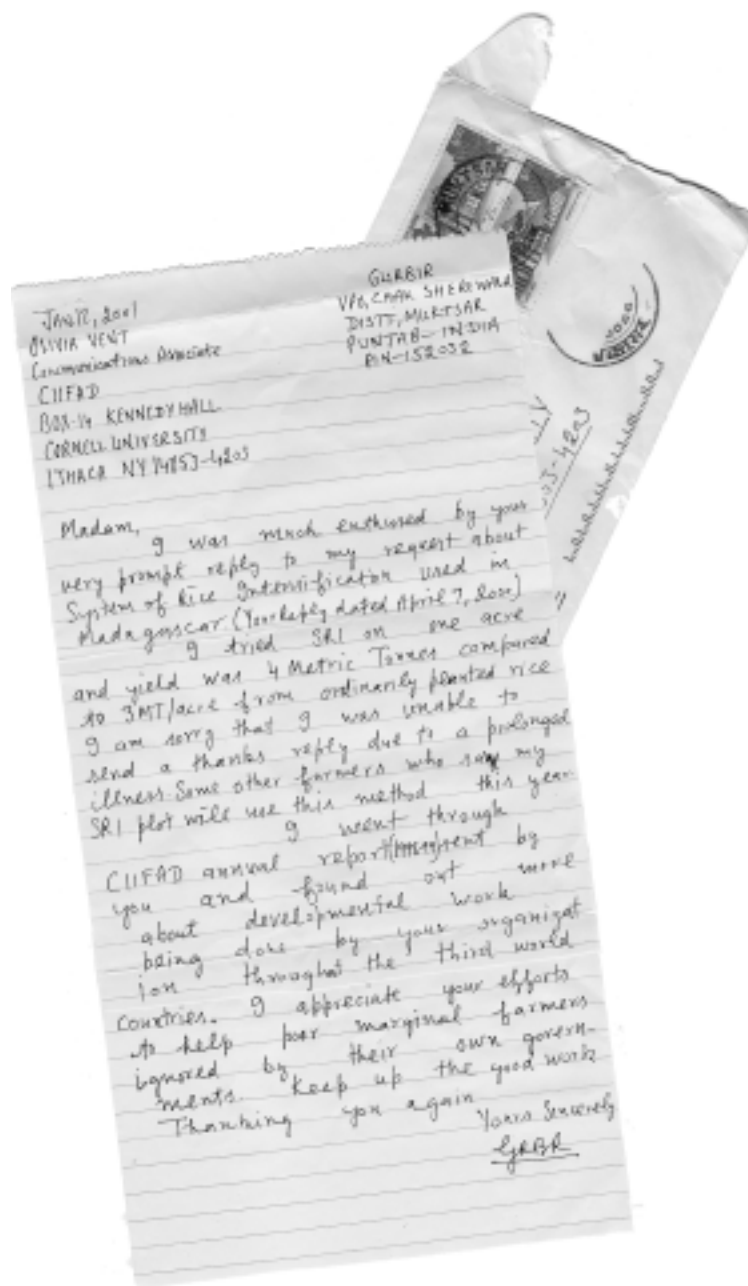 GURBIR
VPO, CHAK SHEREWALA
DISTT, MUKTSAR
PUNJAB - INDIA
PIN-152032
JAN 12, 2001
OLIVIA VENT
Communications Associate
CIIFAD
BOX-14 KENNEDY HALL
CORNELL UNIVERSITY
ITHACA NY 14853-4203
Madam,
I was much enthused by your
very prompt reply to my request about
System of Rice Intensification used in
Madagascar. (Your Reply dated April 7, 2000)
I tried SRI on one acre
and yield was 4 Metric Tonnes compared
to 3MT/acre from ordinarily planted rice
I am sorry that I was unable to
send a thanks reply due to a prolonged
illness. Some other farmers who saw my
SRI plot will use this method this year.
I went through
CIIFAD annual report sent by
you and found out more
about developmental work
being done by your organizat
ion throughout the third world
Countries. I appreciate your efforts
to help poor marginal farmers
ignored by their own govern-
ments. Keep up the good work
Thanking you again
Yours Sincerely
GRBR
53-4203